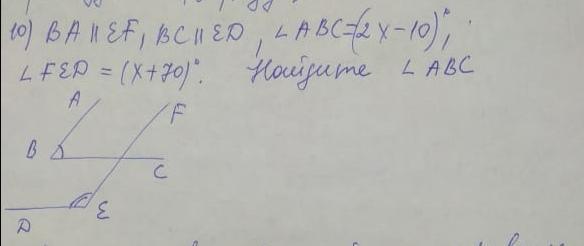 10) BA ∥ EF, BC ∥ ED, ∠ABC=(2x-10)°,
∠FED = (x+70)°. Найдите ∠ABC
A
F
B
C
D
E